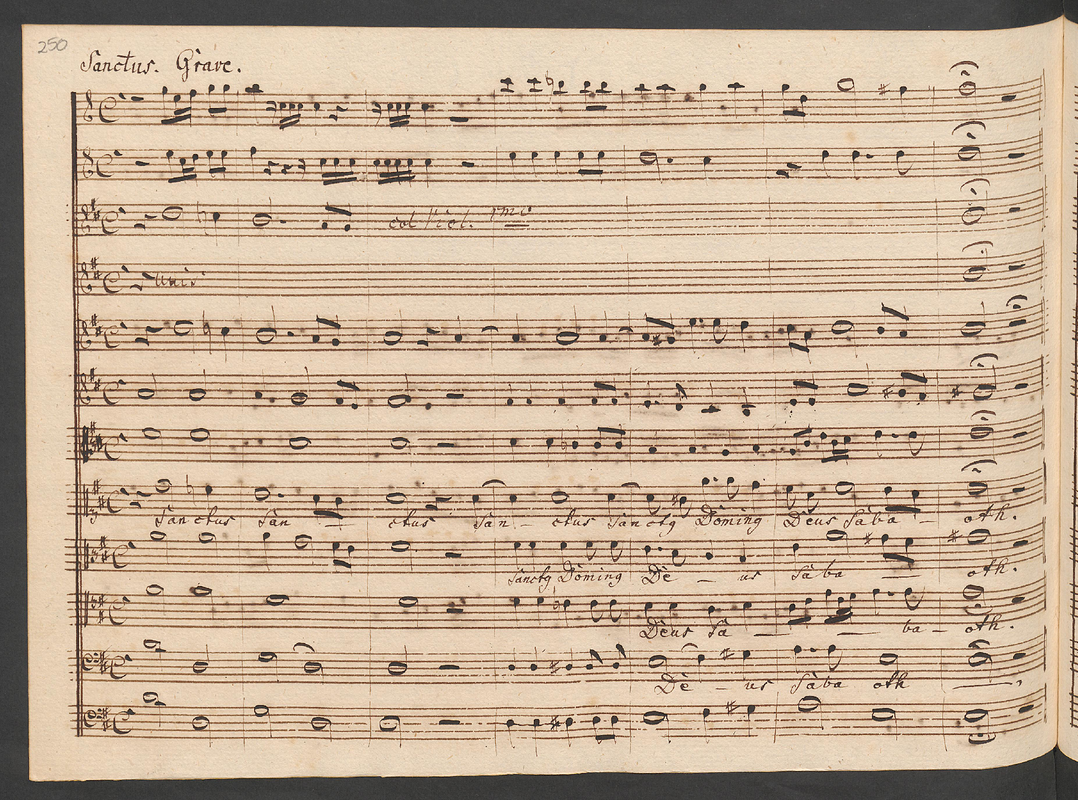 250
Sanctus. Grave.
col Viol. 1mo
unis
Sanctus San - ctus San - ctus Sanctq Dominq Deus Saba - oth.
Sanctq Dominq De - us Saba - oth.
Deus Sa - - ba - oth.
De - us Saba oth